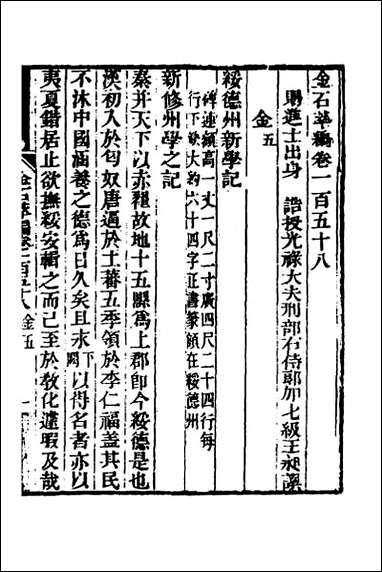 金石萃編卷一百五十八
賜進士出身　誥授光祿大夫刑部右侍郎加七級王昶譔
金五
綏德州新學記
碑連額高一丈一尺二寸廣四尺二十四行每
行下缺大約六十四字正書篆額在綏德州
新修州學之記
秦并天下以赤翟故地十五縣爲上郡卽今綏德是也
漢初入於匈奴唐逼於土蕃五季領於李仁福蓋其民
不沐中國涵養之德爲日久矣且水下闕以得名者亦以
夷夏錯居止欲撫綏安輯之而已至於教化遑暇及哉
金石萃編卷一百五十八　金五　一